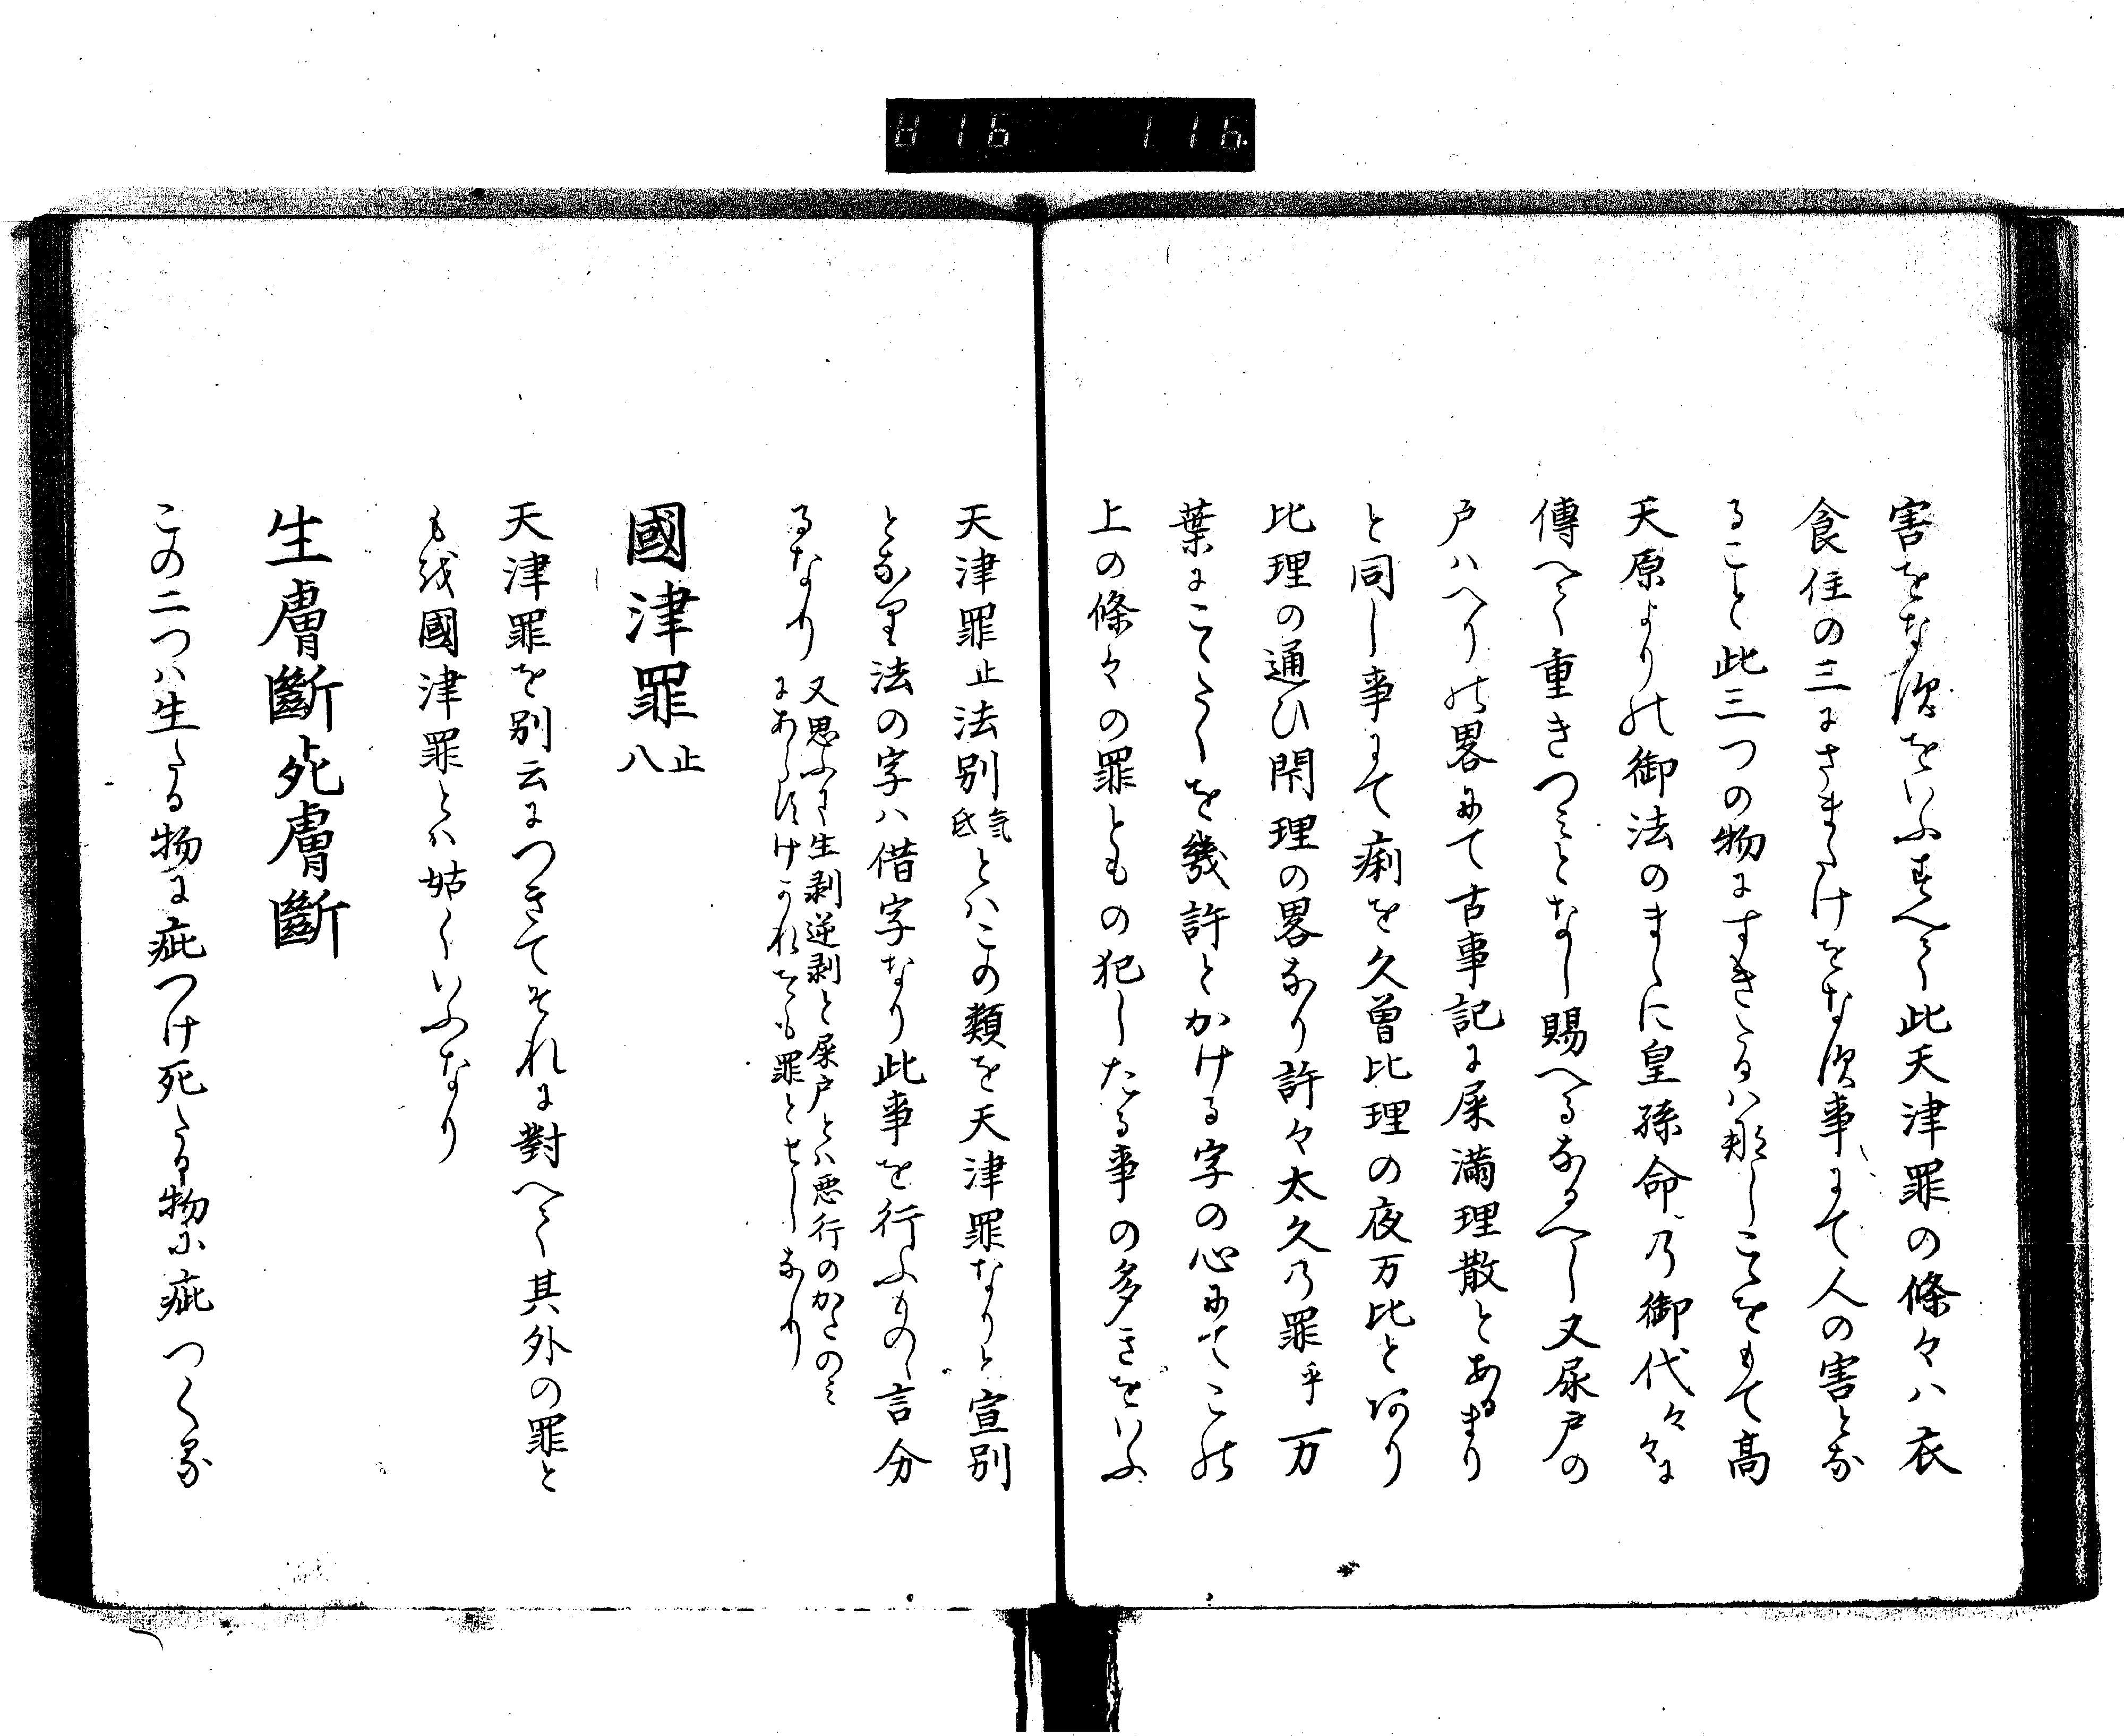 816 116
害をなすをいふすへて此天津罪の條々ハ衣
食住の三にさまたけをなす事にて人の害とな
ること此三つの物にすきたるハ那しこゝをもて高
天原よりの御法のまゝに皇孫命乃御代々々に
傳へて重きつみとなし賜へるなるへし又屎戸の
戸ハへりの畧にて古事記に屎満理散とあるまり
と同し事にて痢を久曽比理の夜万比とあり
比理の通ひ閇理の畧なり許々太久乃罪乎万
葉にこゝたくを幾許とかける字の心にてこの
上の條々の罪ともの犯したる事の多きをいふ
天津罪止法別氣氐とハこの類を天津罪なりと宣別
となり法の字ハ借字なり此事を行ふものゝ言分
るなり又思ふに生剥逆剥と屎戸とハ悪行のかたのみ
にあらすけかれをも罪とせしなり
國津罪止八
天津罪を別云につきてそれに對へて其外の罪と
も越國津罪とハ姑くいふなり
生膚斷死膚斷
この二つハ生たる物に疵つけ死たる物に疵つくる